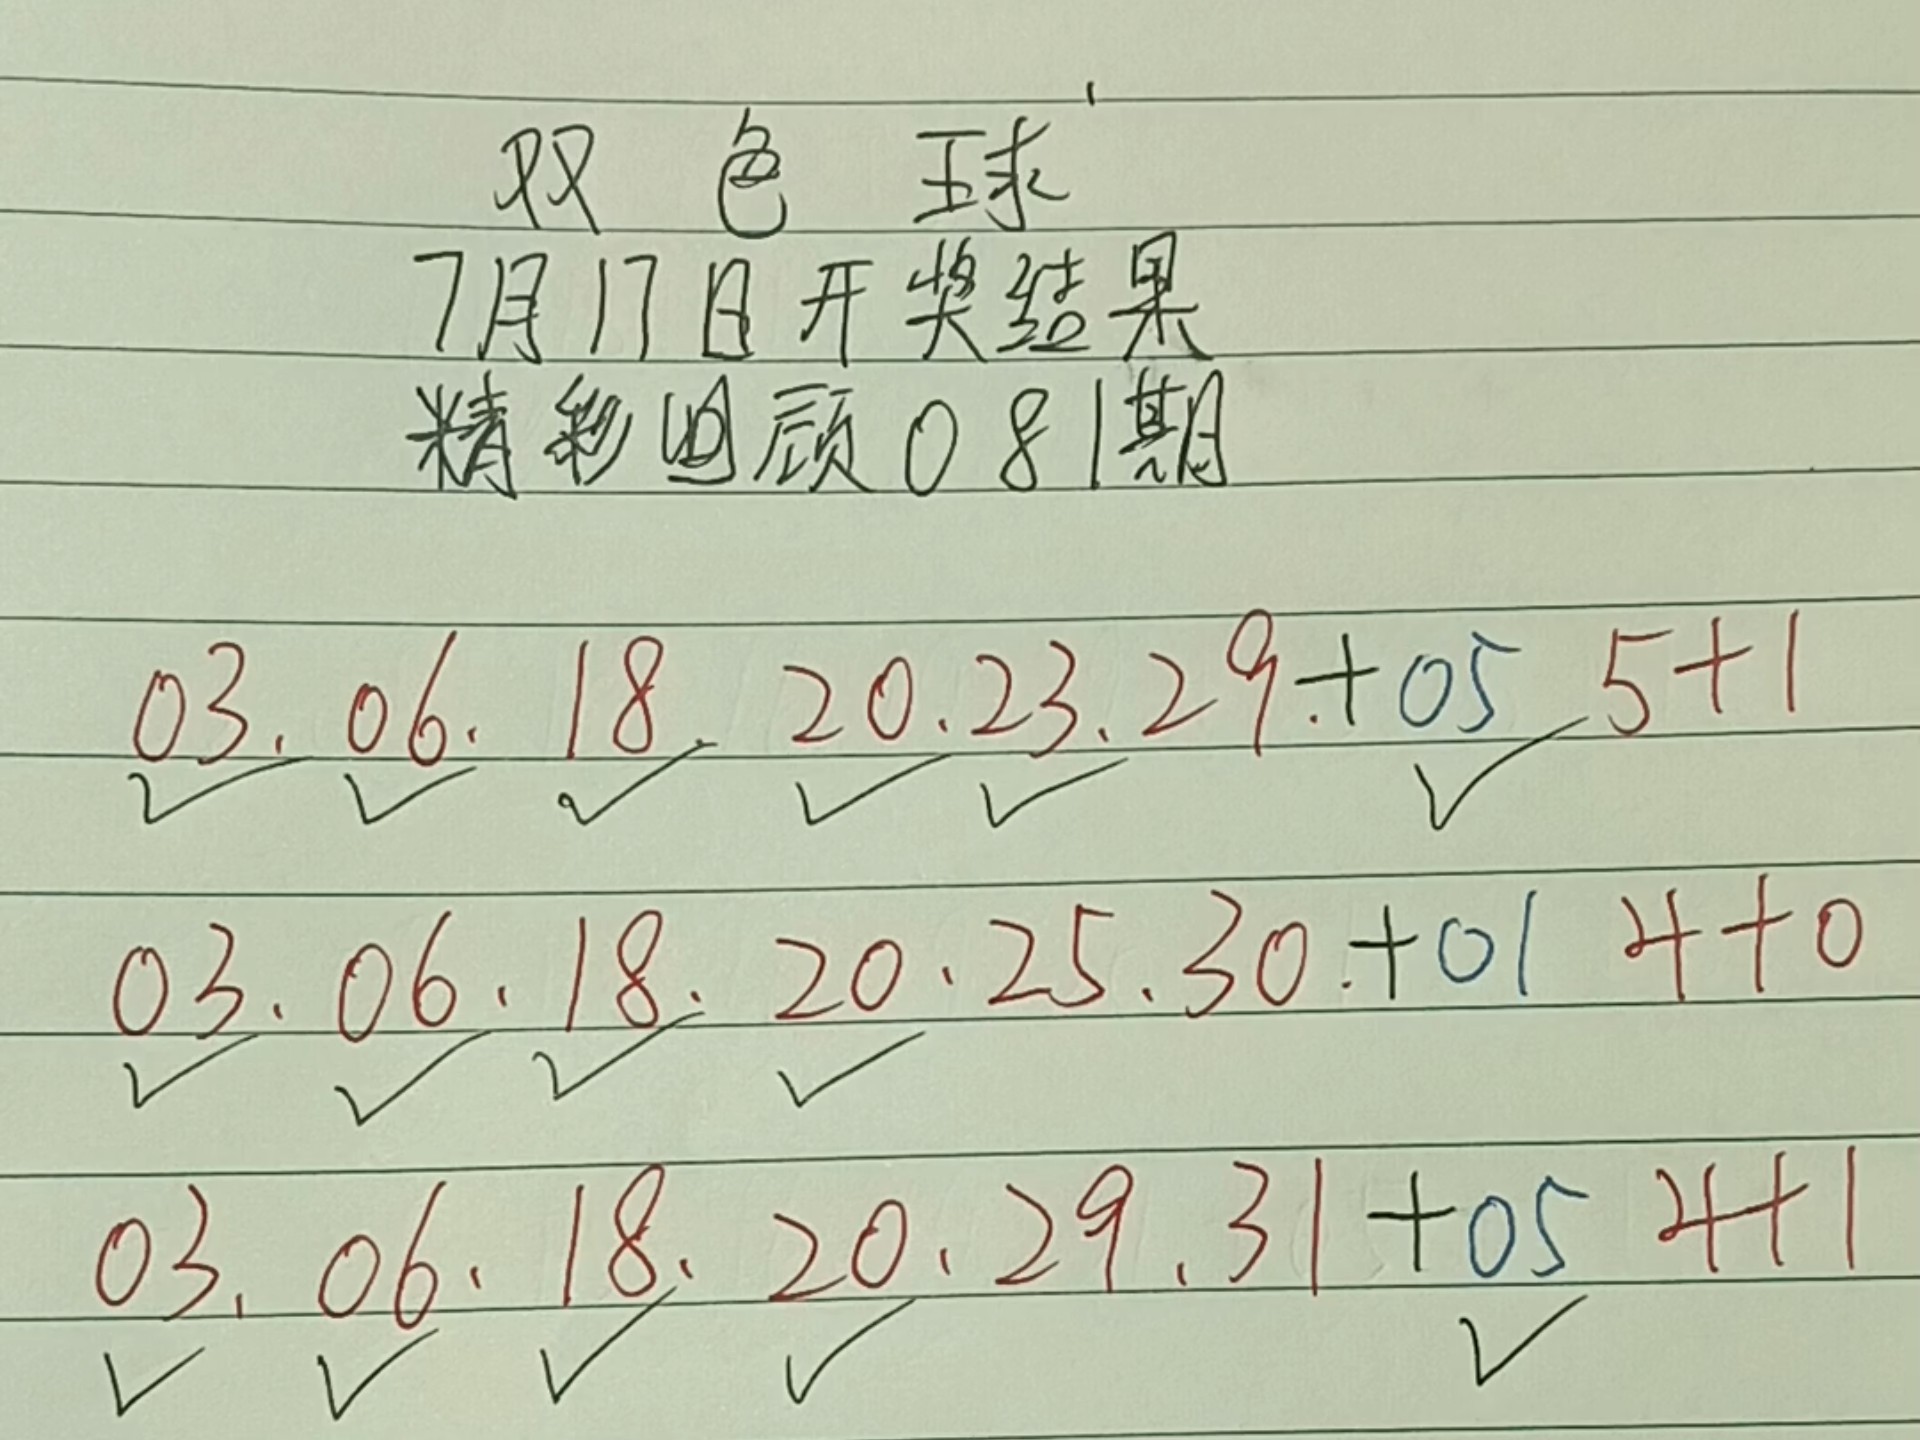 双色球
7月17日开奖结果
精彩回顾081期
03.06.18.20.23.29.+05 5+1
03.06.18.20.25.30.+01 4+0
03.06.18.20.29.31+05 4+1